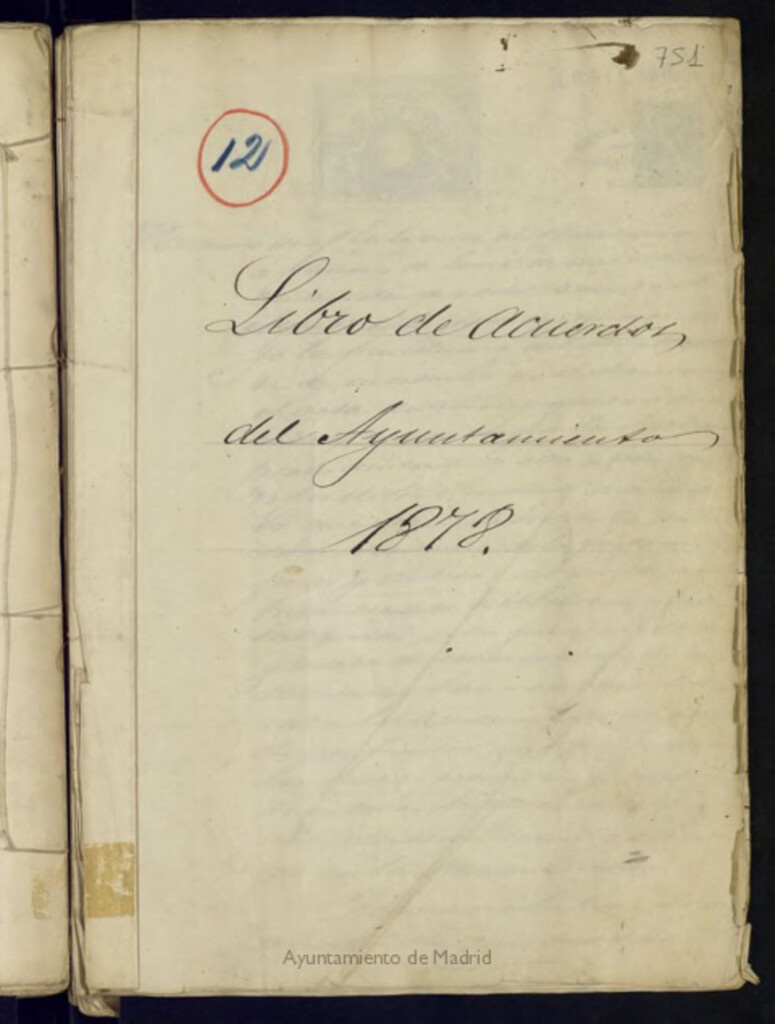 751
12
Libro de Acuerdos
del Ayuntamiento
1878.
Ayuntamiento de Madrid